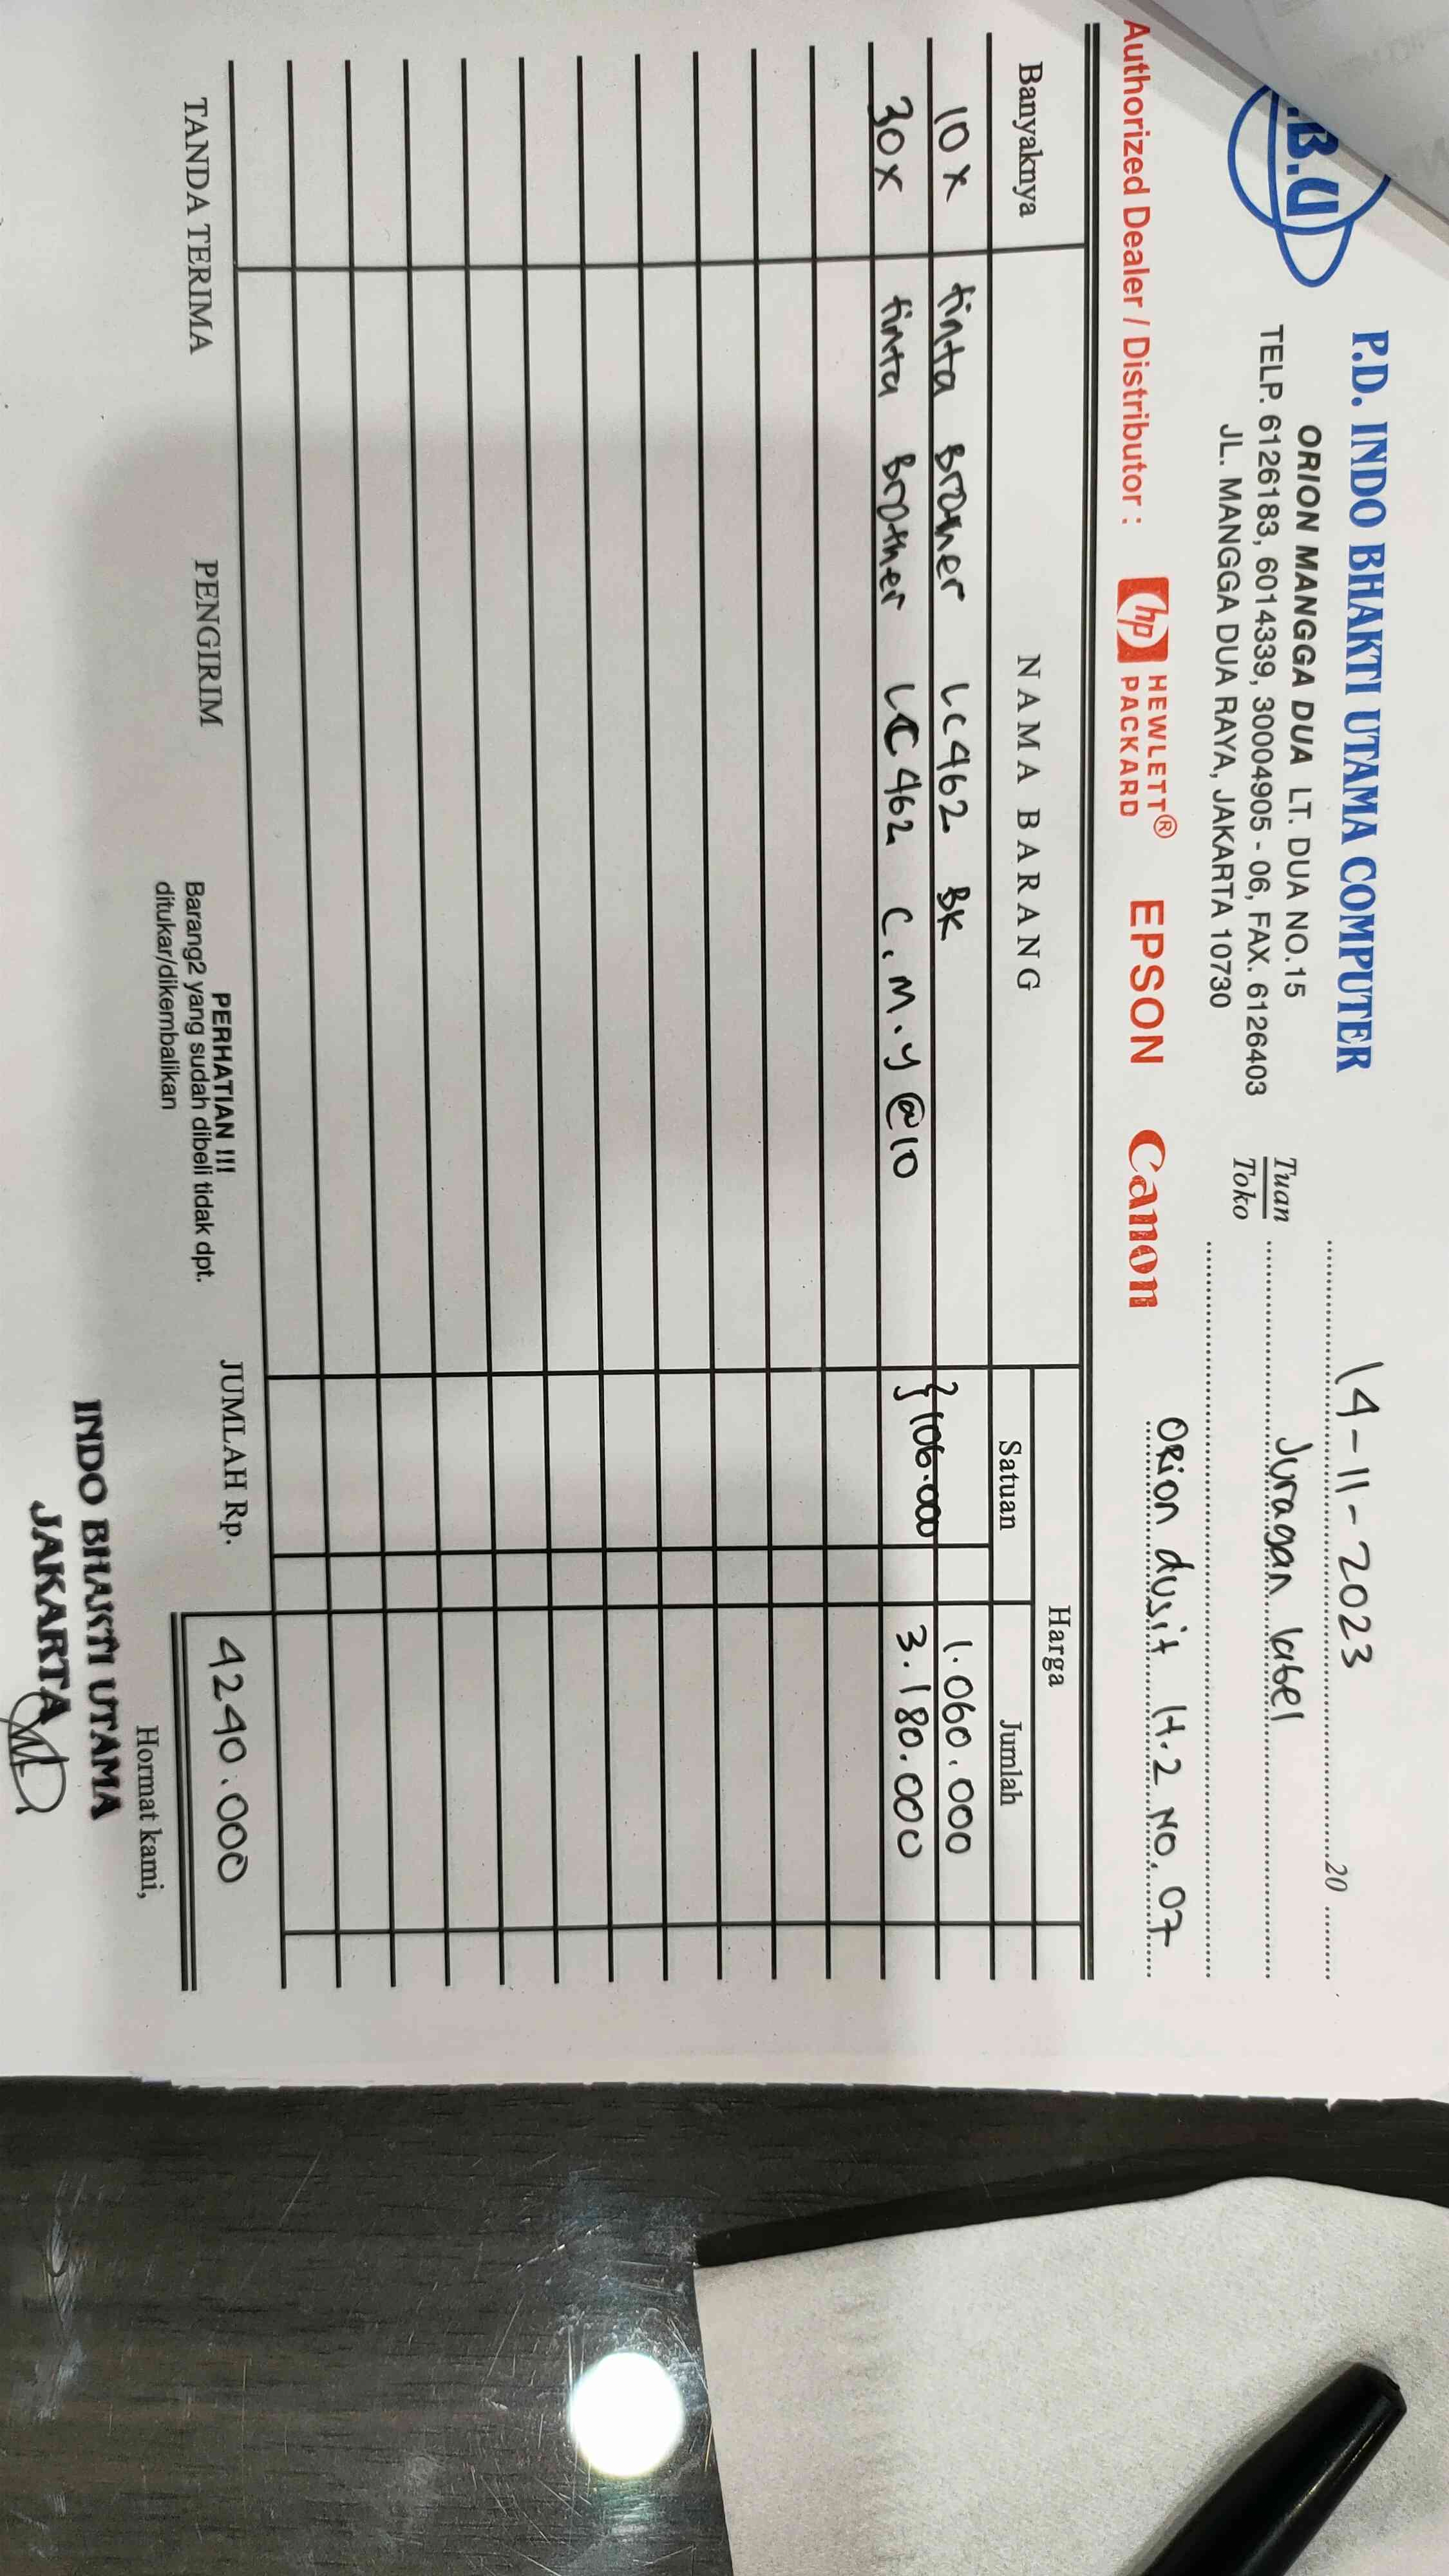 .B.U
P.D. INDO BHAKTI UTAMA COMPUTER
ORION MANGGA DUA LT. DUA NO.15
TELP. 6126183, 6014339, 30004905 - 06, FAX. 6126403
JL. MANGGA DUA RAYA, JAKARTA 10730
14-11-2023 20
Tuan
Toko
Juragan label
Orion dusit H.2 No. 07
Authorized Dealer / Distributor : hp HEWLETT® PACKARD EPSON Canon
Banyaknya NAMA BARANG Harga
Satuan Jumlah
10 x tinta Brother LC462 BK } 106.000 1.060.000
30 x tinta Brother LC462 C.M.Y @10 3.180.000
TANDA TERIMA PENGIRIM JUMLAH Rp. 4240.000
PERHATIAN !!!
Barang2 yang sudah dibeli tidak dpt.
ditukar/dikembalikan
Hormat kami,
INDO BHAKTI UTAMA
JAKARTA